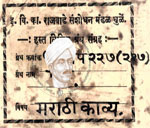 इ. वि. का. राजवाडे संशोधन मंडळ, धुळें.
हस्त लिखित ग्रंथ संग्रह
ग्रंथ क्रमांक प २२७(२८७)
ग्रंथ नाम
विषय मराठी काव्य.